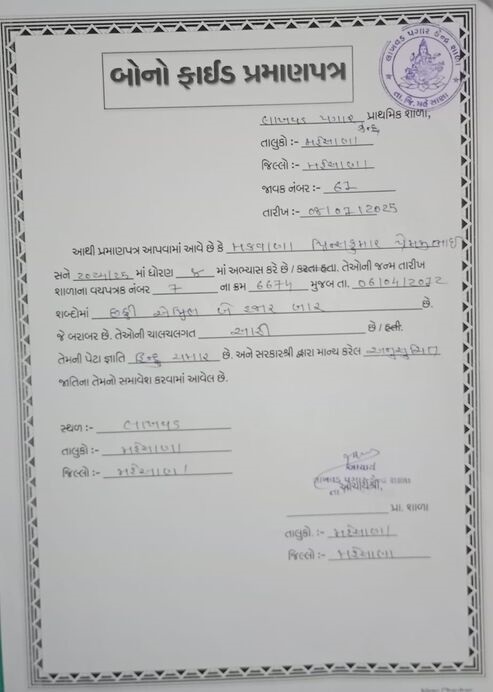 લાખવડ પગાર કેન્દ્ર શાળા
તા. જિ. મહેસાણા
બોનો ફાઈડ પ્રમાણપત્ર
લાખવડ પગાર કેન્દ્ર પ્રાથમિક શાળા,
તાલુકો :- મહેસાણા
જિલ્લો :- મહેસાણા
જાવક નંબર :- 67
તારીખ :- 08/07/2025
આથી પ્રમાણપત્ર આપવામાં આવે છે કે મકવાણા પ્રેમજીભાઈ
સને 2024/25 માં ધોરણ માં અભ્યાસ કરે છે / કરતા હતા. તેઓની જન્મ તારીખ
શાળાના વયપત્રક નંબર 7 ના ક્રમ 6674 મુજબ તા. 06/04/2012
શબ્દોમાં છઠ્ઠી એપ્રિલ બે હજાર બાર છે.
જે બરાબર છે. તેઓની ચાલચલગત સારી છે / હતી.
તેમની પેટા જ્ઞાતિ હિન્દુ ચમાર છે. અને સરકારશ્રી દ્વારા માન્ય કરેલ અનુસુચિત
જાતિના તેમનો સમાવેશ કરવામાં આવેલ છે.
સ્થળ :- લાખવડ
તાલુકો :- મહેસાણા
જિલ્લો :- મહેસાણા
આચાર્ય
લાખવડ પગાર કેન્દ્ર શાળા
આચાર્યશ્રી,
પ્રા. શાળા
તાલુકો :- મહેસાણા
જિલ્લો :- મહેસાણા